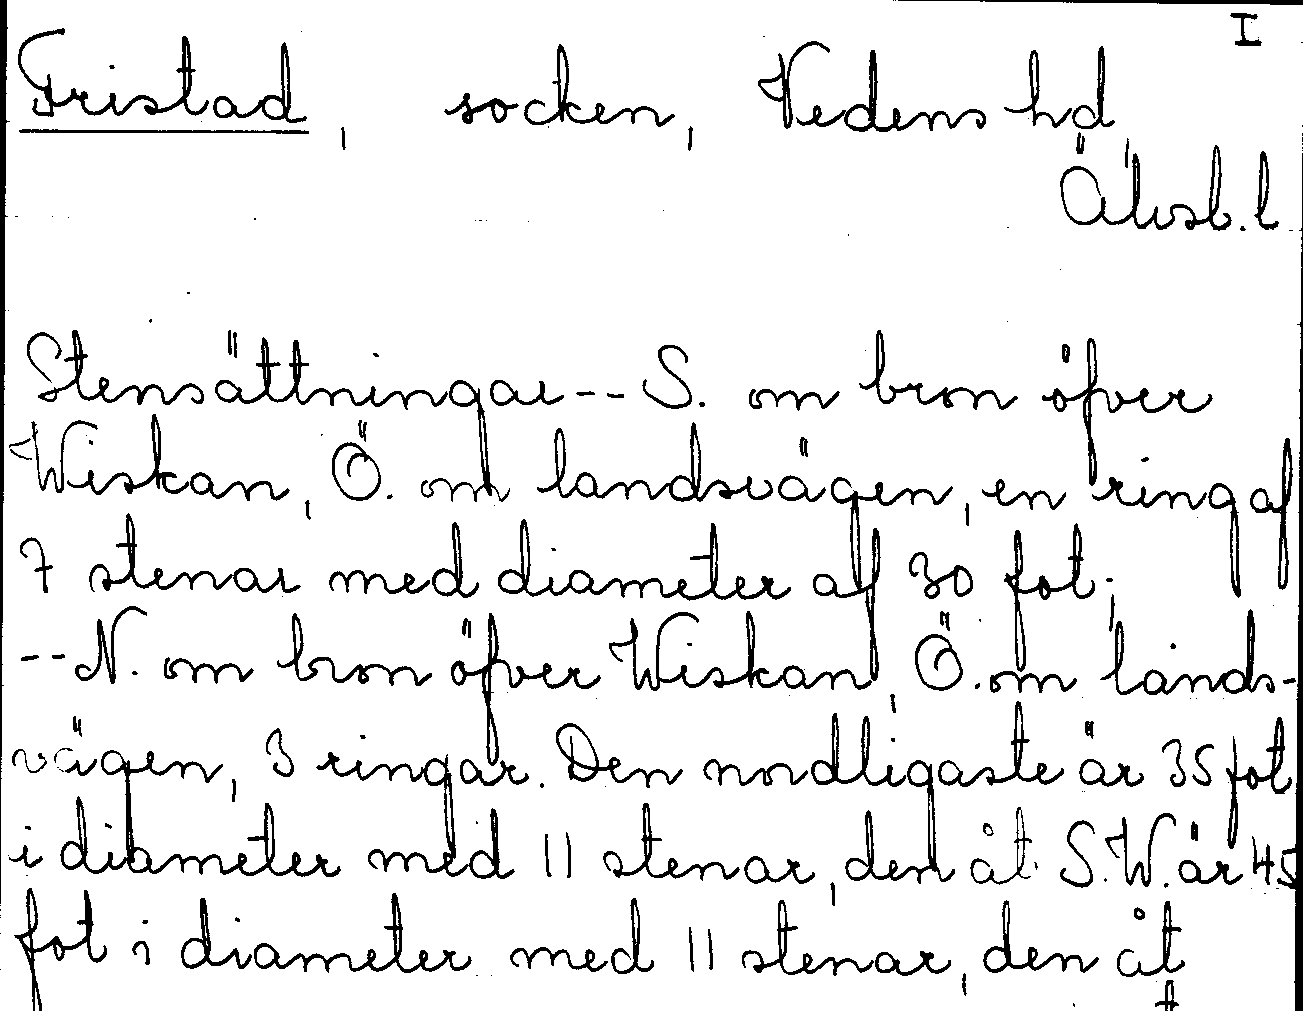 I
Fristad, socken, Vedens hd
Älvsb. l
Stensättningar -- S. om bron öfver
Wiskan, Ö. om landsvägen, en ring af
7 stenar med diameter af 30 fot;
-- N. om bron öfver Wiskan, Ö. om lands-
vägen, 3 ringar. Den nordligaste är 35 fot
i diameter med 11 stenar, den åt S.W. är 45
fot i diameter med 11 stenar, den åt